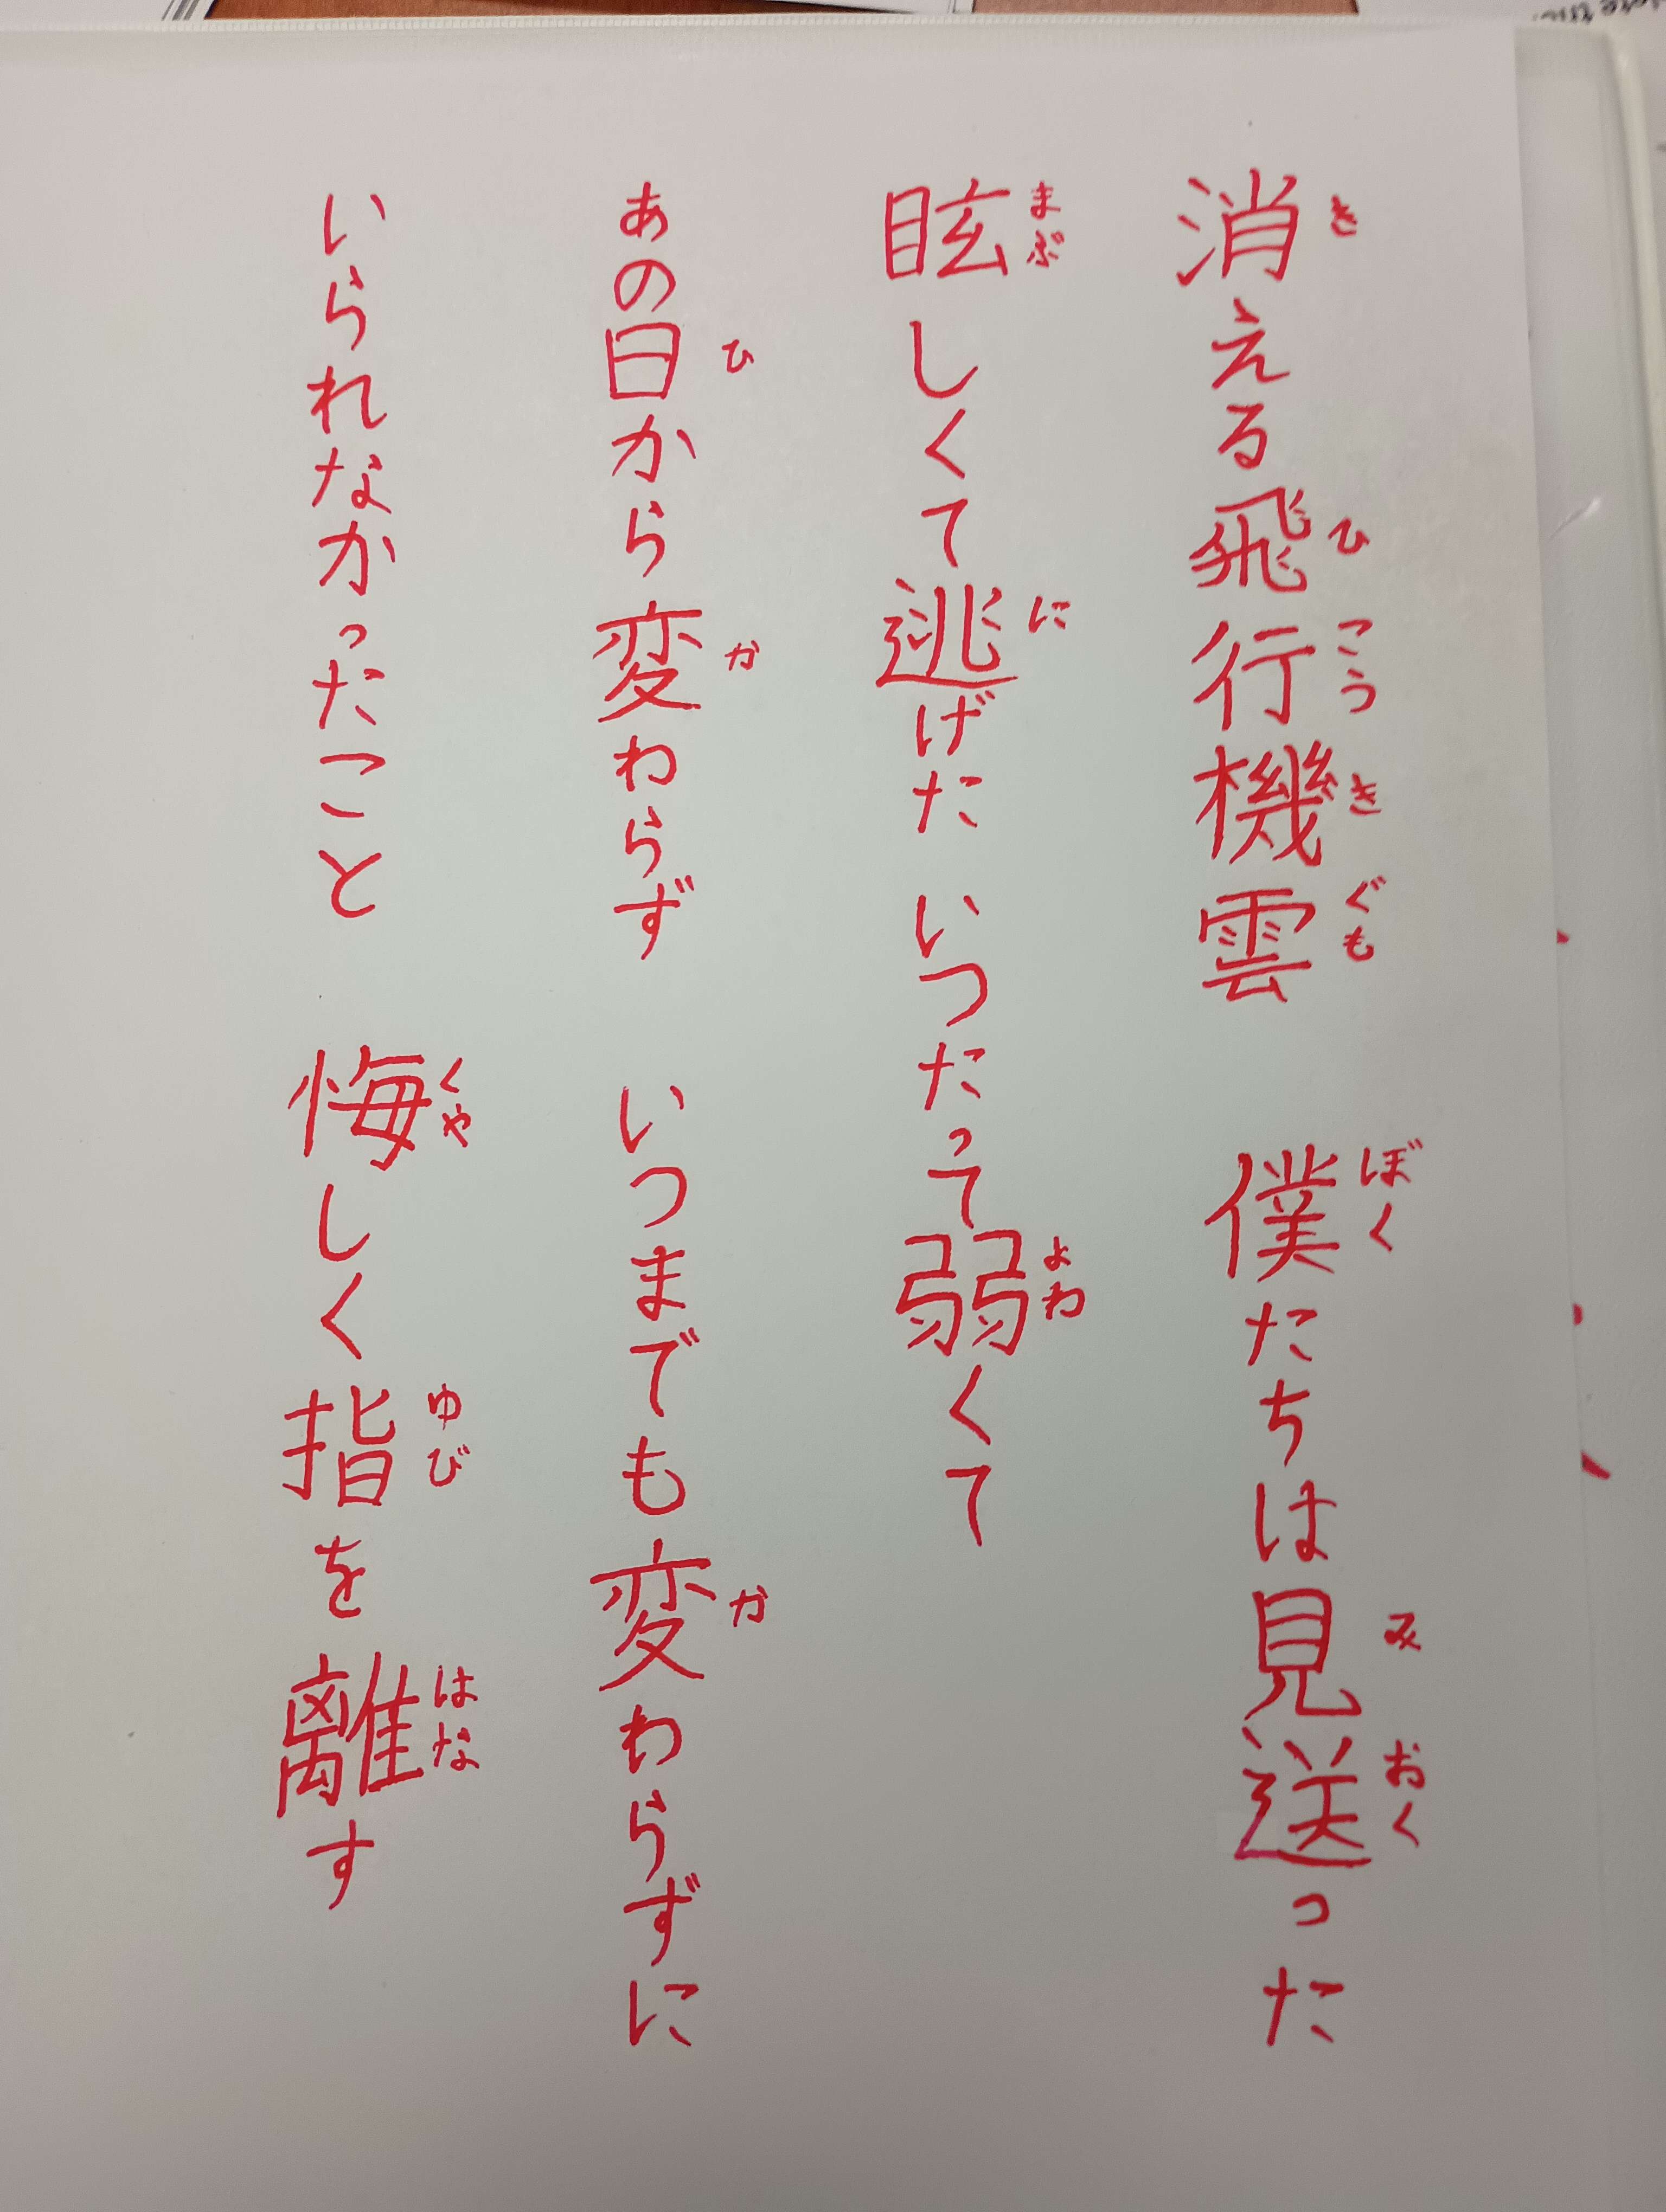 消える飛行機雲　僕たちは見送った
き　ひこうきぐも　ぼく　みおく
眩しくて逃げた　いつだって弱くて
まぶ　に　よわ
あの日から変わらず　いつまでも変わらずに
ひ　か　か
いられなかったこと　悔しく指を離す
くや　ゆび　はな